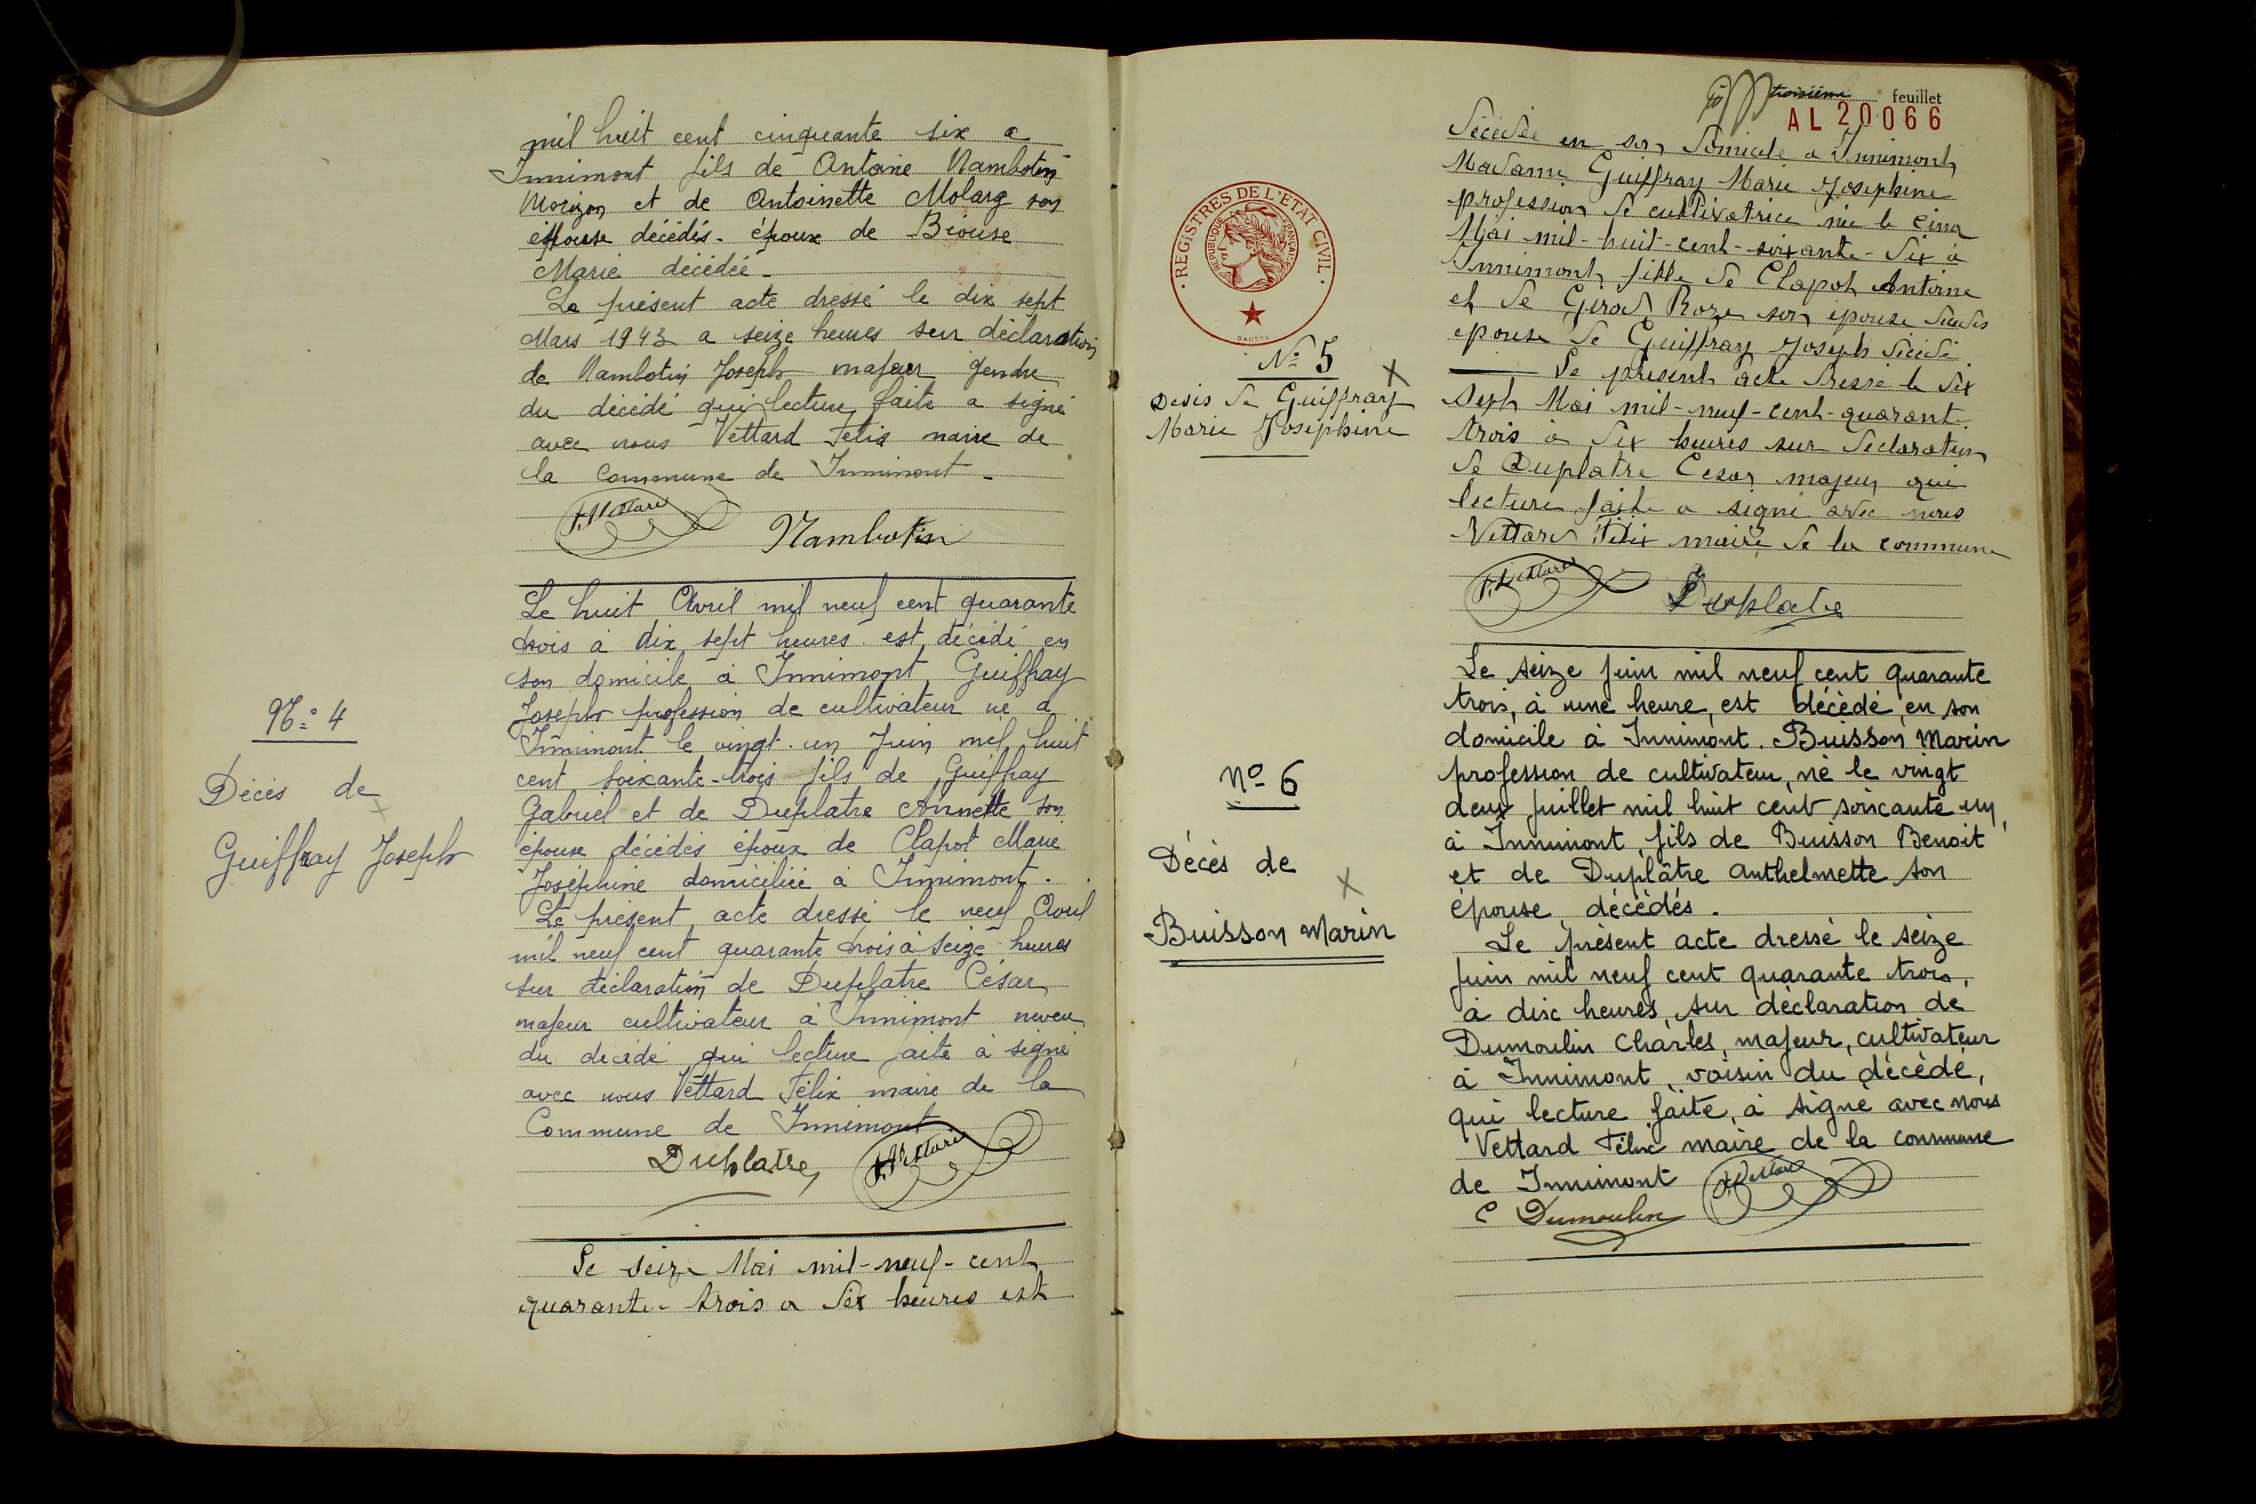 mil huit cent cinquante six a
Innimont fils de Antoine Nambotin
Morizon et de Antoinette Molarg son
épouse décédés - époux de Biouse
Marie décédée -
Le présent acte dressé le dix sept
Mars 1943 a seize heures sur déclaration
de Nambotin Joseph majeur gendre
du décédé qui lecture faite a signé
avec nous Vettard Felix maire de
la Commune de Innimont -
F. Vettard
Nambotin
N° 4
Décès de
Guiffray Joseph
Le huit Avril mil neuf cent quarante
trois à dix sept heures est décédé en
son domicile à Innimont Guiffray
Joseph profession de cultivateur né a
Innimont le vingt-un Juin mil huit
cent soixante-trois fils de Guiffray
Gabriel et de Duplatre Annette son
épouse décédés époux de Clapot Marie
Joséphine domiciliée à Innimont.
Le présent acte dressé le neuf Avril
mil neuf cent quarante trois à seize heures
sur déclaration de Duplatre César
majeur cultivateur à Innimont neveu
du décédé qui lecture faite à signé
avec nous Vettard Félix maire de la
Commune de Innimont
Duplatre
F. Vettard
Le seize Mai mil-neuf-cent
quarante-trois a dix heures est
troisième feuillet
AL 20066
REGISTRES DE L'ETAT CIVIL
REPUBLIQUE FRANÇAISE
N° 5
Désis de Guiffray
Marie Josephine
décédée en son domicile a Innimont
Madame Guiffray Marie Josephine
profession de cultivatrice née le cinq
Mai mil-huit-cent-soixante-six à
Innimont fille de Clapot Antoine
et de Girod Roze son épouse décédés
epouse de Guiffray Joseph décédé.
Le présent acte dressé le dix
sept Mai mil-neuf-cent-quarant-
trois à dix heures sur déclaration
de Duplatre Cesar majeur qui
lecture faite a signé avec nous
Vettard Félix maire de la commune
F. Vettard
Duplatre
N° 6
Décès de
Buisson Marin
Le seize Juin mil neuf cent quarante
trois, à une heure, est décédé, en son
domicile à Innimont. Buisson Marin
profession de cultivateur, né le vingt
deux juillet mil huit cent soixante un,
à Innimont, fils de Buisson Benoit
et de Duplâtre Anthelmette son
épouse, décédés.
Le présent acte dressé le seize
Juin mil neuf cent quarante trois,
à dix heures, sur déclaration de
Dumoulin Charles, majeur, cultivateur
à Innimont, voisin du décédé,
qui lecture faite, à signé avec nous
Vettard Félix maire de la commune
de Innimont
F. Vettard
C Dumoulin